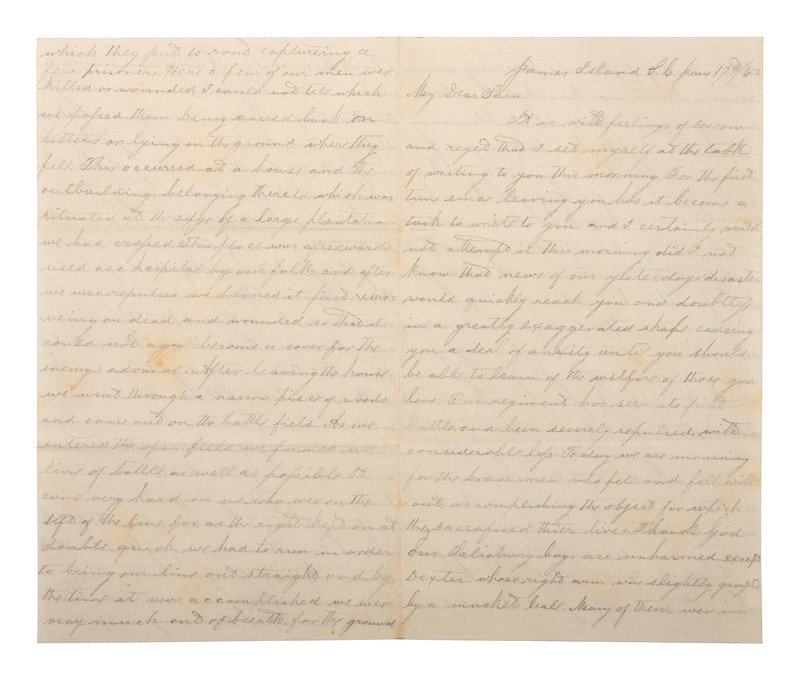 which they put to rout capturing a
few prisoners. Here a few of our men wer
killed or wounded I could not tell which
we passed them being carred back on
litters or lying on the ground where they
fell. This occurred at a house and the
outbuildings belonging there to, which was
situated at the edge of a large plantation
we had crossed. This place was afterwards
used as a hospital by our folks and after
we wer repulsed we burned it first remo-
veing our dead and wounded so that it
could not again become a cover for the
enemys advance. After leaving the house
we went through a narrow piece of woods
and came out on the battle field. As we
entered the open field we formed in
line of battle as well as possible. It
came very hard on us who wer on the
left of the line for as the right kept on at
double quick we had to run in order
to bring our line out straight and by
the time it was accomplished we wer
very much out of breath. for the ground
James Island S.C. June 17th/62
My Dear Sara
It is with feelings of sorrow
and regret that I set myself at the task
of writing to you this morning. For the first
time since leaving you has it become a
task to write to you and I certainly would
not attempt it this morning did I not
know that news of our yesterdays disaster
would quickly reach you and doubtless
in a greatly exaggerated shape causing
you a deal of anxiety until you should
be able to learn of the welfire of those you
love. Our regiment has seen its first
battle and been severely repulsed with
considerable loss. Today we are mourning
for the brave men who fell and fell with
out accomplishing the object for which
they sacrificed thier lives. Thank God
our Salisbury boys are unharmed except
Dexter whose right arm was slightly grazed
by a musket ball. Many of them wer in